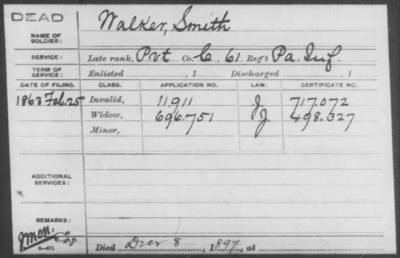 DEAD
NAME OF SOLDIER: Walker, Smith
SERVICE: Late rank, Pvt Co. C, 61 Reg't Pa. Inf.
TERM OF SERVICE: Enlisted , 1 Discharged , 1
DATE OF FILING. CLASS. APPLICATION NO. LAW. CERTIFICATE NO.
1863 Feb. 25 Invalid, 11911 J 717.072
Widow, 696.751 J. 498.327
Minor,
ADDITIONAL SERVICES:
REMARKS:
Died Dec 8, 1897, at